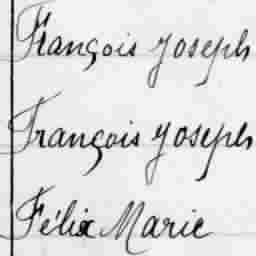 François Joseph
François Joseph
Félix Marie